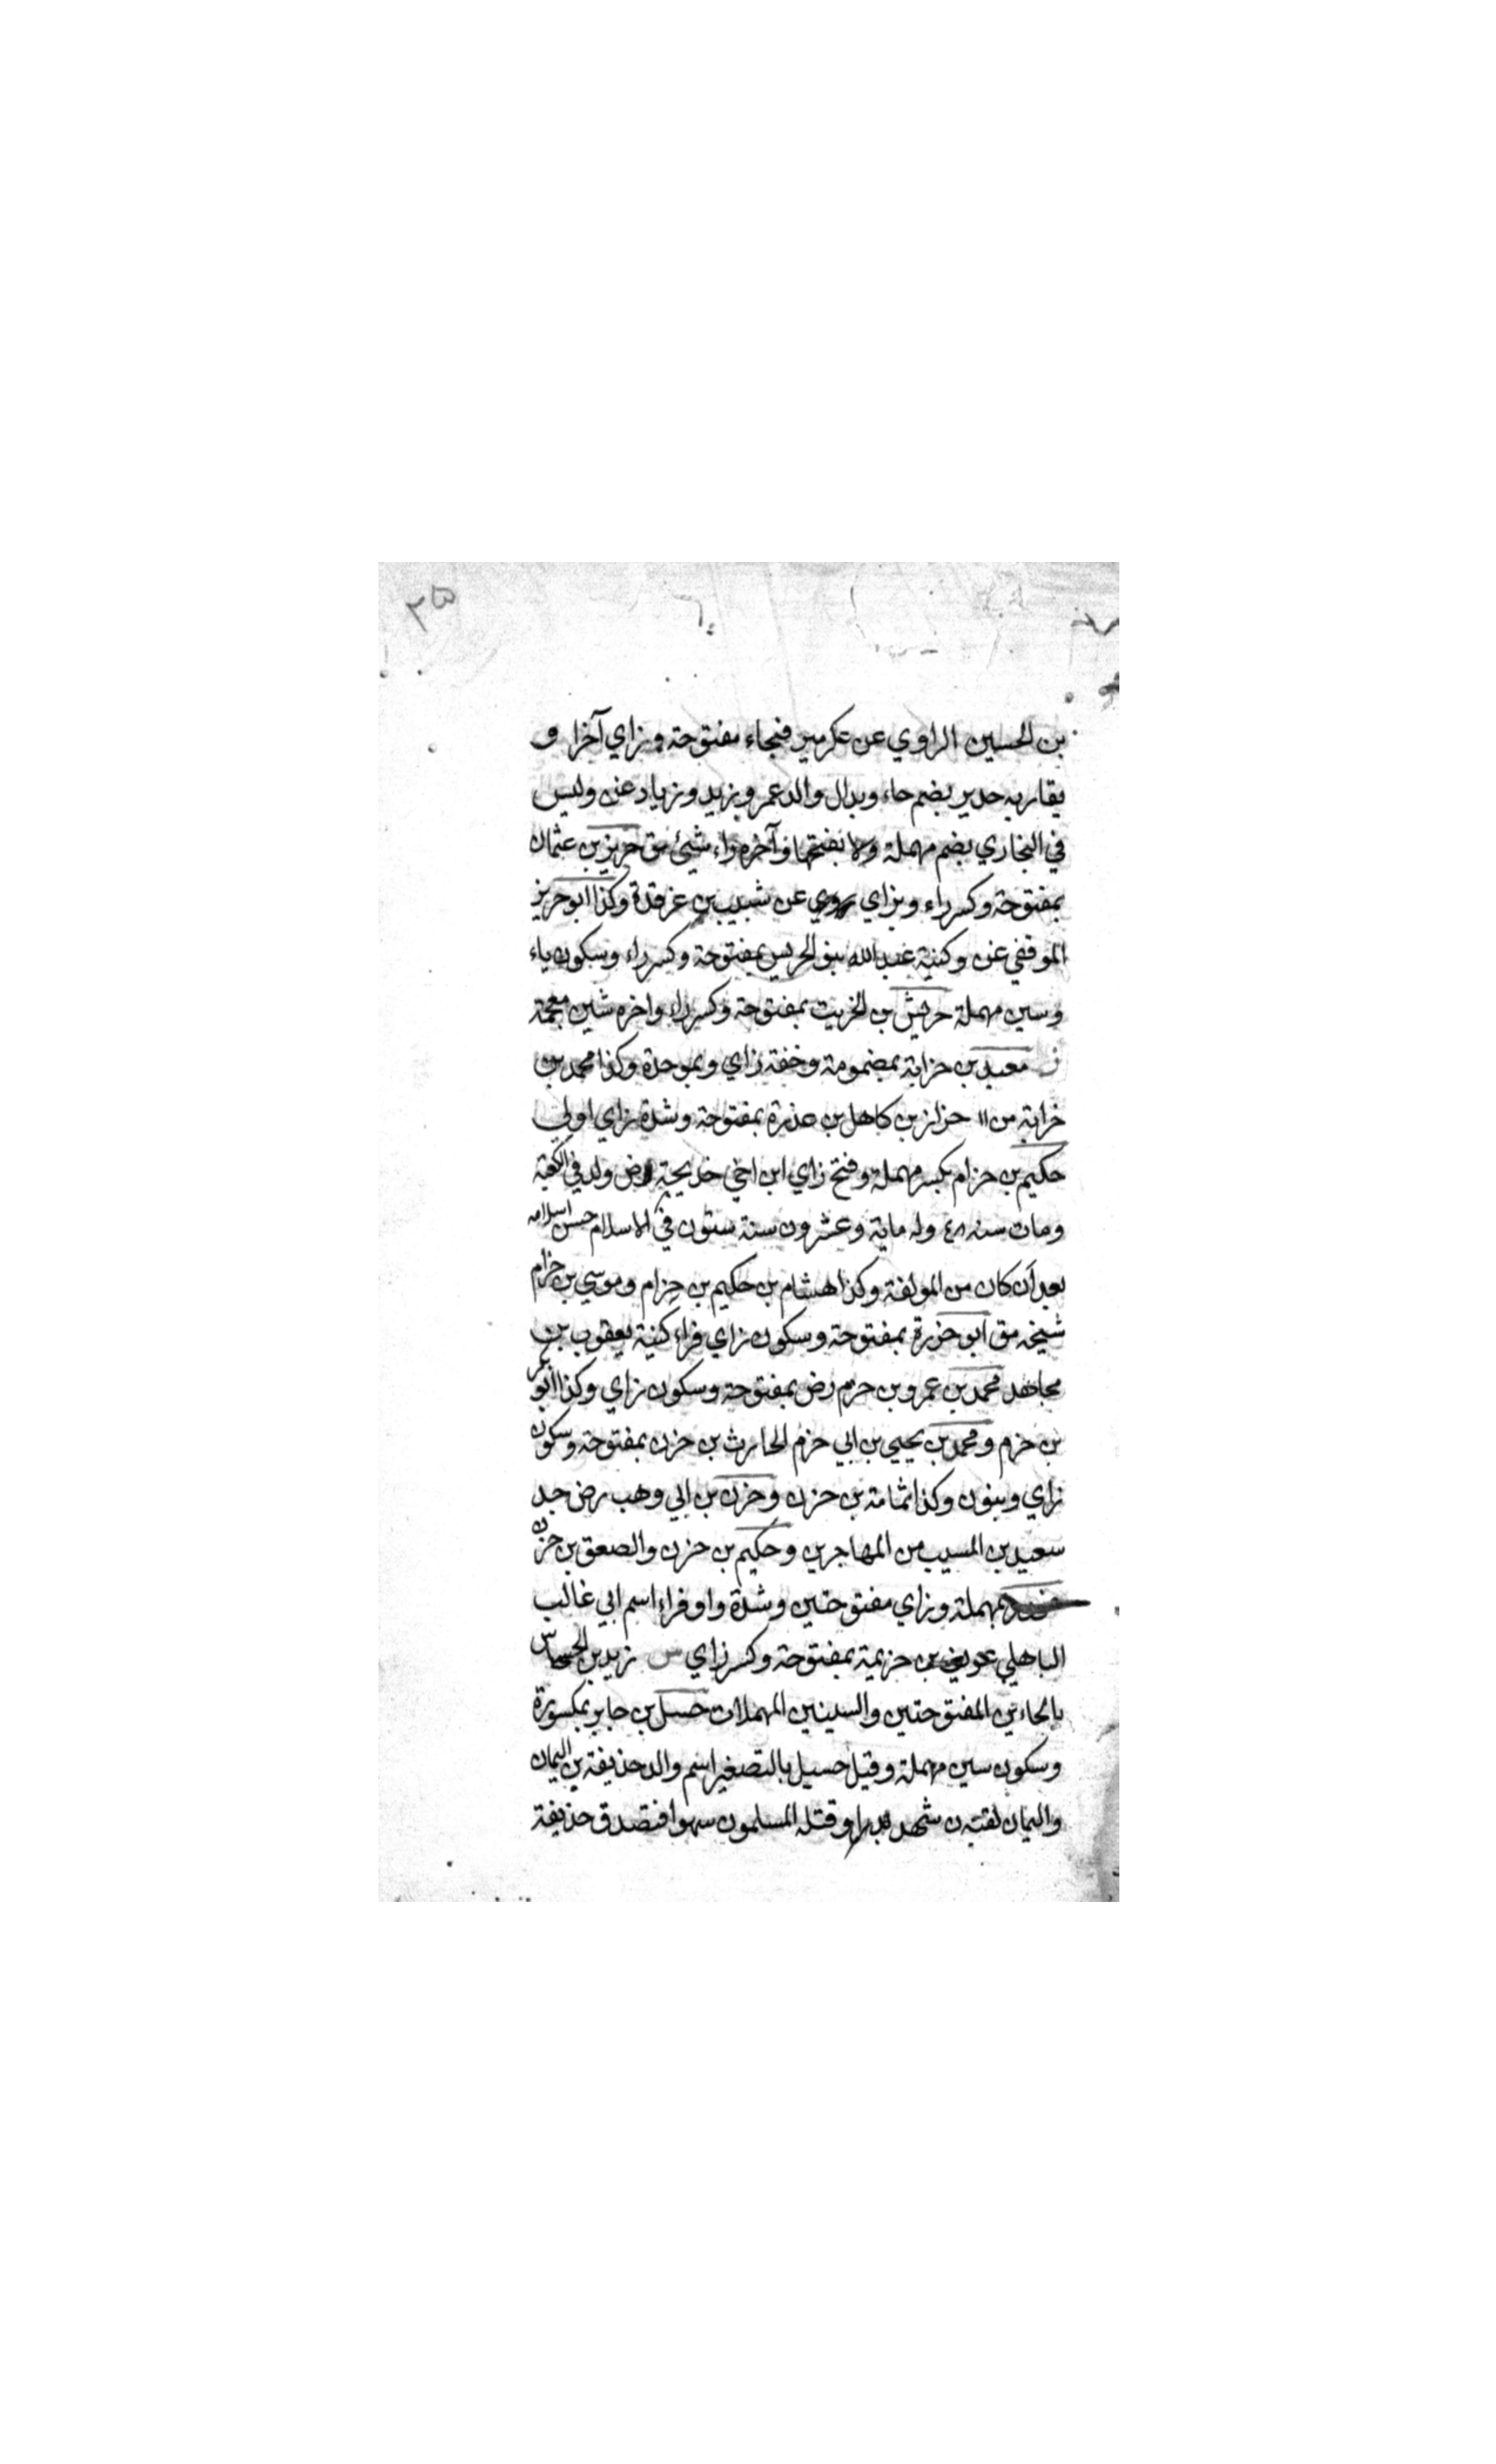 ٢٥
بن الحسين الراوي عن عكرمة فبحاء مفتوحة وزاي آخرا و
يقاربه حدير بضم حاء وبدال والد عمر ويزيد وزياد عن وليس
في البخاري بضم مهملة ولا بفتحها وآخره راء شيئ مق حريز بن عثمان
بمفتوحة وكسر راء وبزاي يروي عن شبيب بن غرقدة وكذا ابو حريز
الموقفي عن وكنية عبد الله بنو الحريس بمفتوحة وكسر راء وسكون ياء
وسين مهملة حريش بن الخريت بمفتوحة وكسر راء واخره شين معجمة
ز معبد بن حزابة بمضمومة وخفة زاي وبموحدة وكذا محمد بن
خرابة من ١١ حزاز بن كاهل بن عذرة بمفتوحة وشدة زاي اولى
حكيم بن حزام بكسر مهملة وفتح زاي ابن اخي خديجة رض ولد في الكعبة
ومات سنه وله ماية وعشرون سنة ستون في الاسلام حسن اسلامه
بعد أن كان من المولفة وكذا هشام بن حكيم بن حزام وموسي بن حزام
شيخه مق ابو حزرة بمفتوحة وسكون زاي فراء كنية يعقوب بن
مجاهد محمد بن عمرو بن حزم رض بمفتوحة وسكون زاي وكذا ابو بكر
بن حزم ومحمد بن يحيي بن ابي حزم الحارث بن حزن بمفتوحة وسكون
زاي وبنون وكذا ثمامة بن حزن وحزن بن ابي وهب رض جد
سعيد بن المسيب من المهاجرين وحكيم بن حزن والصعق بن حزن
بمهملة وزاي مفتوحتين وشدة واو فراء اسم ابي غالب
الباهلي عويف بن حزيمة بمفتوحة وكسر زاي س زيد بن الحسحاس
بالحاءين المفتوحتين والسينين المهملات حسل بن جابر بمكسورة
وسكون سين مهملة وقيل حسيل بالتصغير اسم والد حذيفة بن اليمان
واليمان لقبه ن شهد بدرا وقتله المسلمون سهوا فتصدق حذيفة